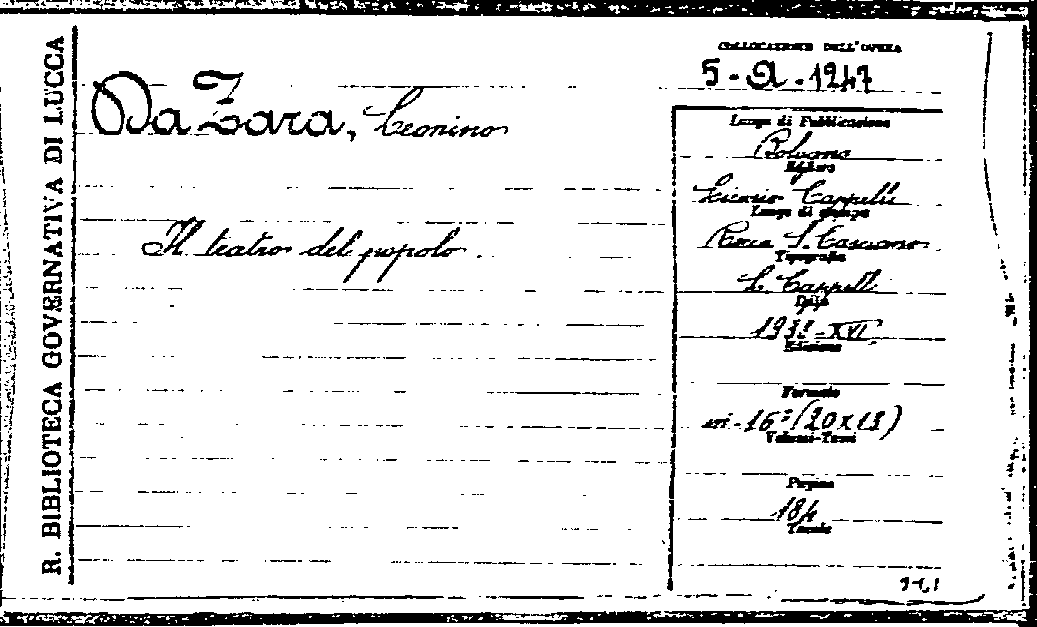 R. BIBLIOTECA GOVERNATIVA DI LUCCA
COLLOCAZIONE DELL'OPERA
5-A-1247
Da Zara, Leonino
Il teatro del popolo.
Luogo di Pubblicazione
Bologna
Editore
Licinio Cappelli
Luogo di stampa
Rocca S. Casciano
Tipografia
L. Cappelli
Data
1938-XVI
Edizione
Formato
in-16° (20x13)
Volumi-Tomi
Pagine
184
Tavole